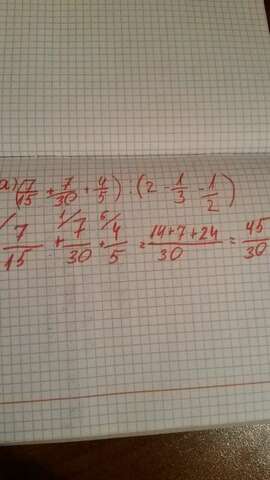 а) (7/15 + 7/30 + 4/5) : (2 - 1/3 - 1/2)
7/15 + 1/ 7/30 + 6/ 4/5 = 14+7+24/30 = 45/30